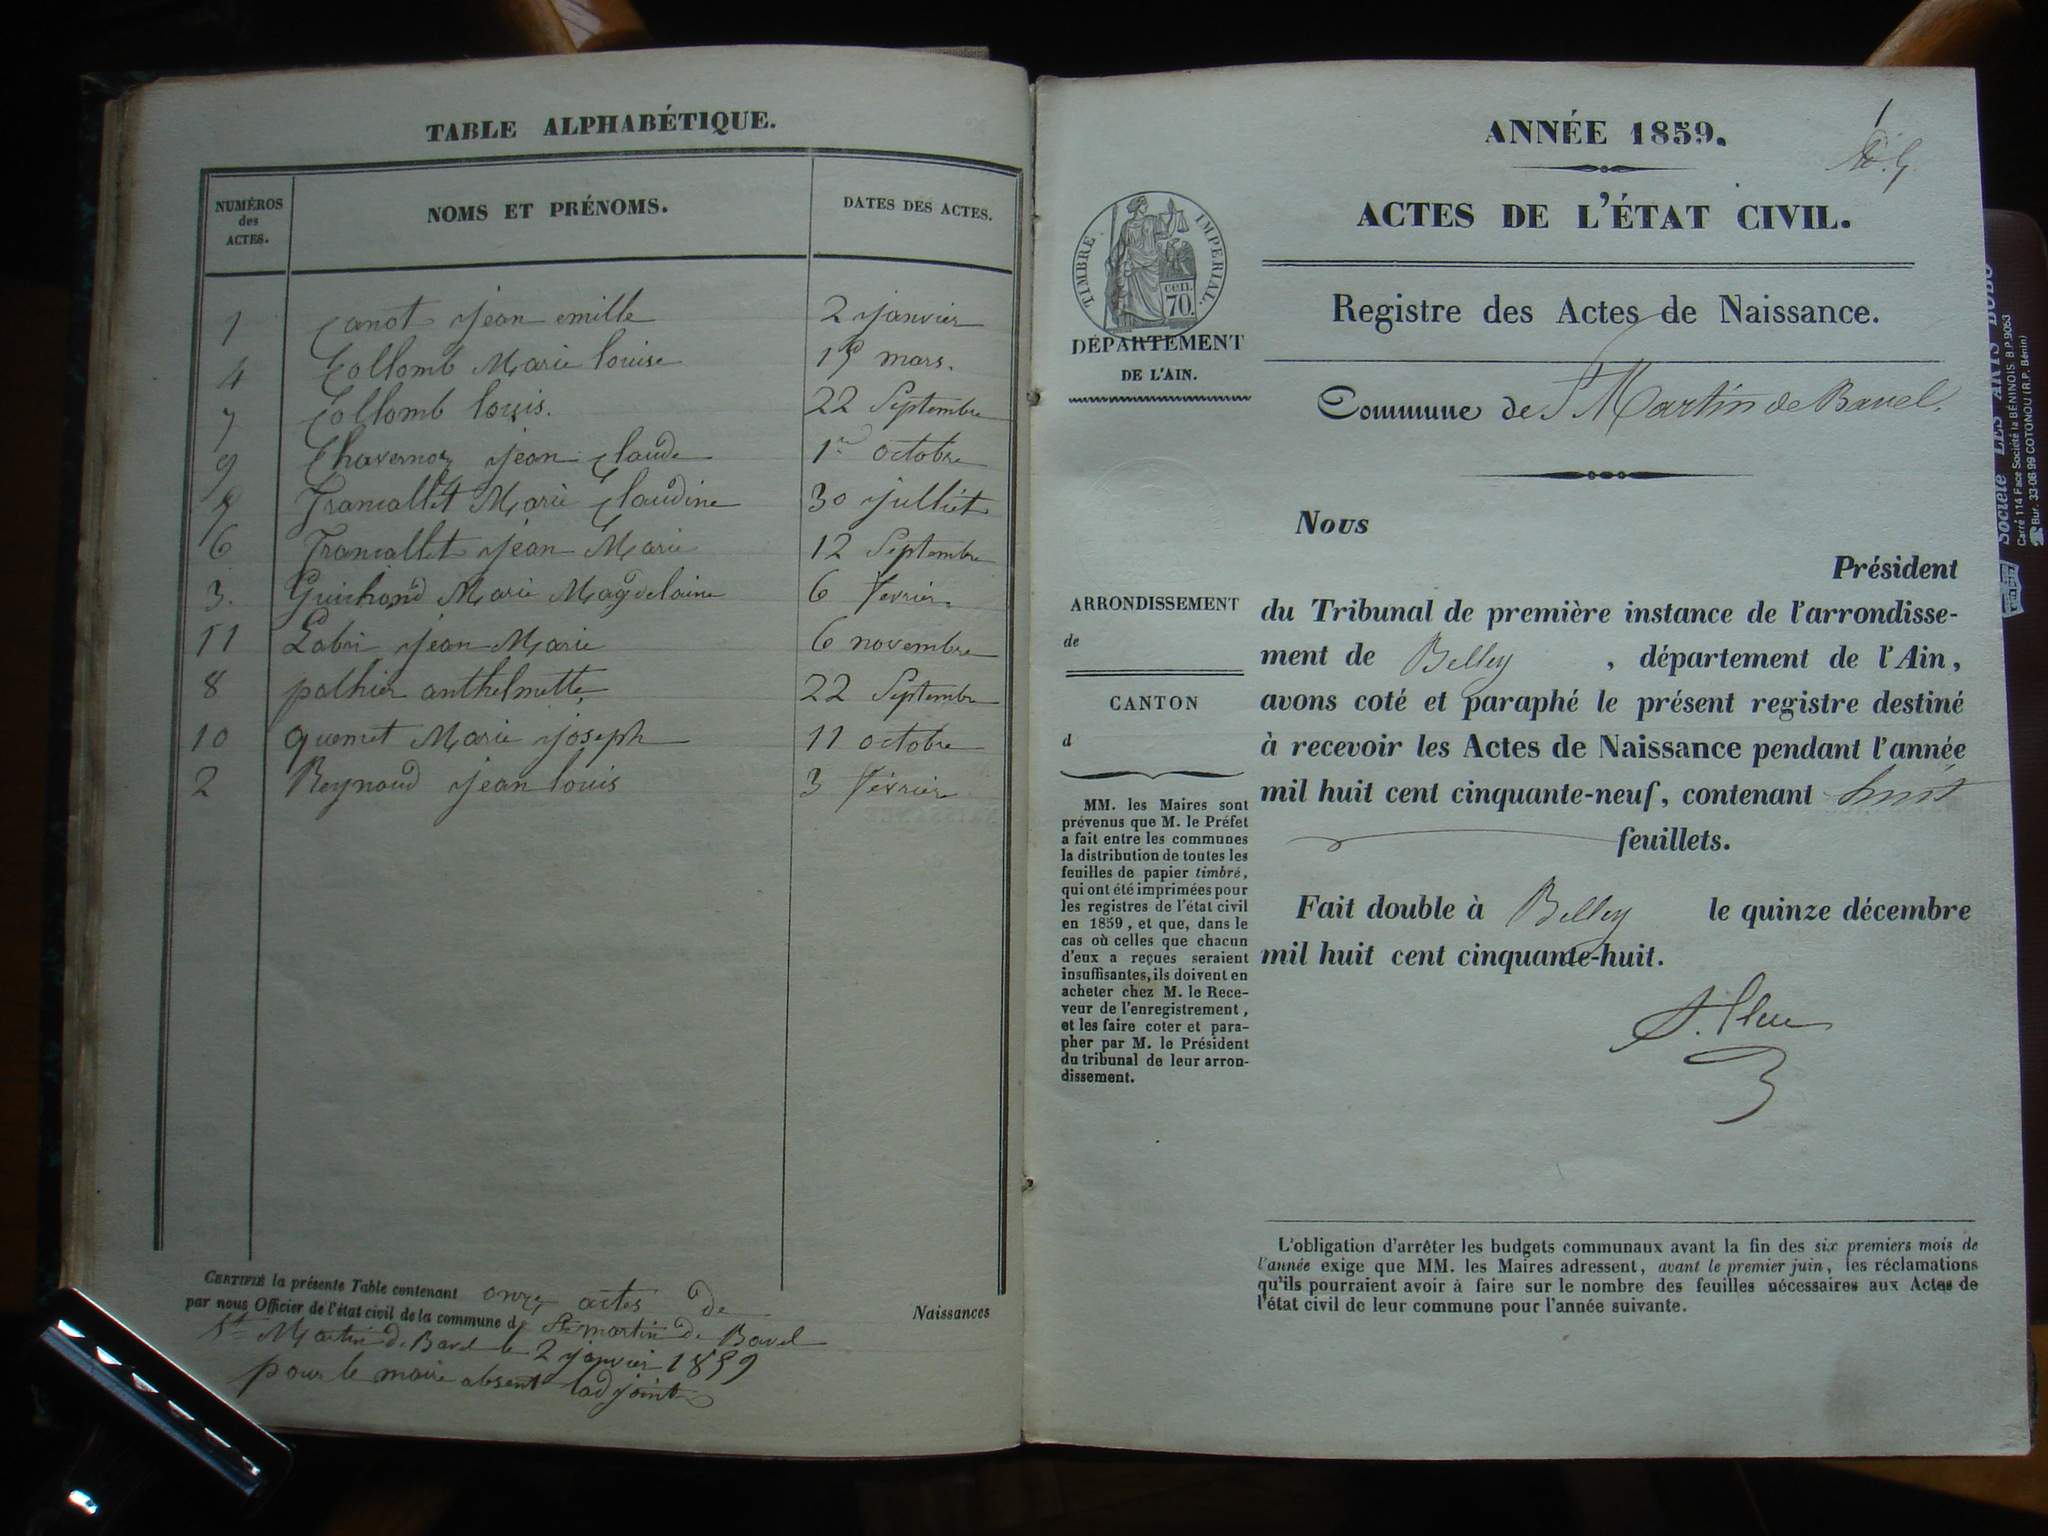 TABLE ALPHABÉTIQUE.
NUMÉROS des ACTES. NOMS ET PRÉNOMS. DATES DES ACTES.
1 Canot jean emille 2 janvier
4 Collomb Marie louise mars.
7 Collomb louis. 22 Septembre
9 Chavernoz jean claude 1er octobre
Marie Claudine 30 julliet
6 jean Marie 12 Septembre
3. Guichond Marie Magdelaine 6 fevrier
11 Labri jean Marie 6 novembre
8 polhier anthelmette 22 Septembre
10 quemet Marie joseph 11 octobre
2 Reynaud jean louis 3 février
CERTIFIÉ la présente Table contenant onze actes de Naissances
par nous Officier de l'état civil de la commune de St martin de Bavel
St Martin de Bavel le 2 janvier 1859
pour le maire absent ladjoint
ANNÉE 1859.
1
ACTES DE L'ÉTAT CIVIL.
TIMBRE IMPERIAL.
cen.
70.
DÉPARTEMENT
DE L'AIN.
Registre des Actes de Naissance.
Commune de St Martin de Bavel.
Nous
Président
du Tribunal de première instance de l'arrondisse-
ment de Belley , département de l'Ain,
avons coté et paraphé le présent registre destiné
à recevoir les Actes de Naissance pendant l'année
mil huit cent cinquante-neuf, contenant huit
feuillets.
Fait double à Belley le quinze décembre
mil huit cent cinquante-huit.
ARRONDISSEMENT
de
CANTON
d
MM. les Maires sont
prévenus que M. le Préfet
a fait entre les communes
la distribution de toutes les
feuilles de papier timbré,
qui ont été imprimées pour
les registres de l'état civil
en 1859, et que, dans le
cas où celles que chacun
d'eux a reçues seraient
insuffisantes, ils doivent en
acheter chez M. le Rece-
veur de l'enregistrement,
et les faire coter et para-
pher par M. le Président
du tribunal de leur arron-
dissement.
L'obligation d'arrêter les budgets communaux avant la fin des six premiers mois de
l'année exige que MM. les Maires adressent, avant le premier juin, les réclamations
qu'ils pourraient avoir à faire sur le nombre des feuilles nécessaires aux Actes de
l'état civil de leur commune pour l'année suivante.
Société LES ARTS BOBO
Carré 114 Face Société la BÉNINOIS. B.P. 9053
Bur. 33-06 99 COTONOU (R.P. Bénin)